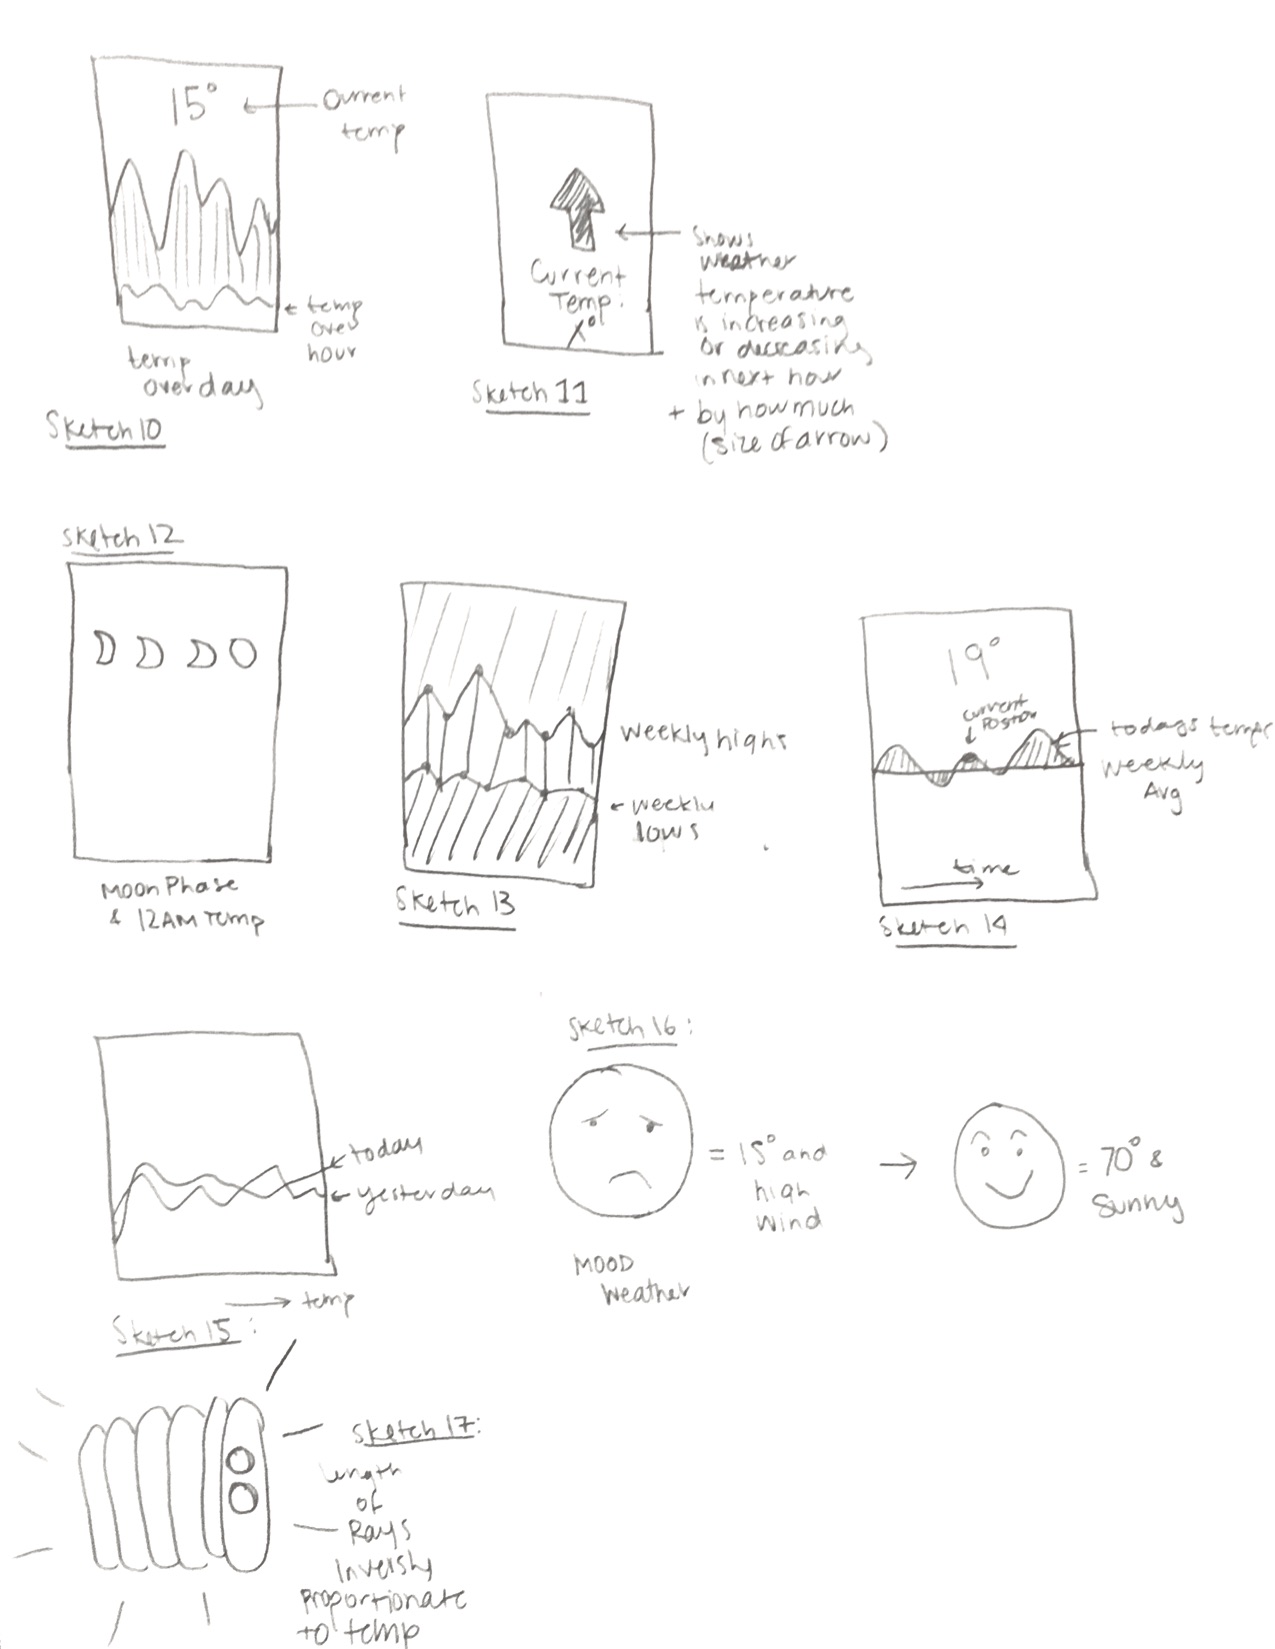 15°
Current
temp
temp
over
hour
temp
over day
Sketch 10
Current
Temp:
X°
Sketch 11
Shows
weather
temperature
is increasing
or decreasing
in next hour
+ by how much
(size of arrow)
Sketch 12
Moon Phase
& 12AM Temp
weekly highs
weekly
lows
Sketch 13
19°
current
todays temps
Weekly
Avg
time
Sketch 14
today
yesterday
temp
Sketch 15:
Sketch 16:
= 15° and
high
wind
MOOD
Weather
= 70° &
Sunny
Sketch 17:
length
of
Rays
Inversly
proportionate
to temp